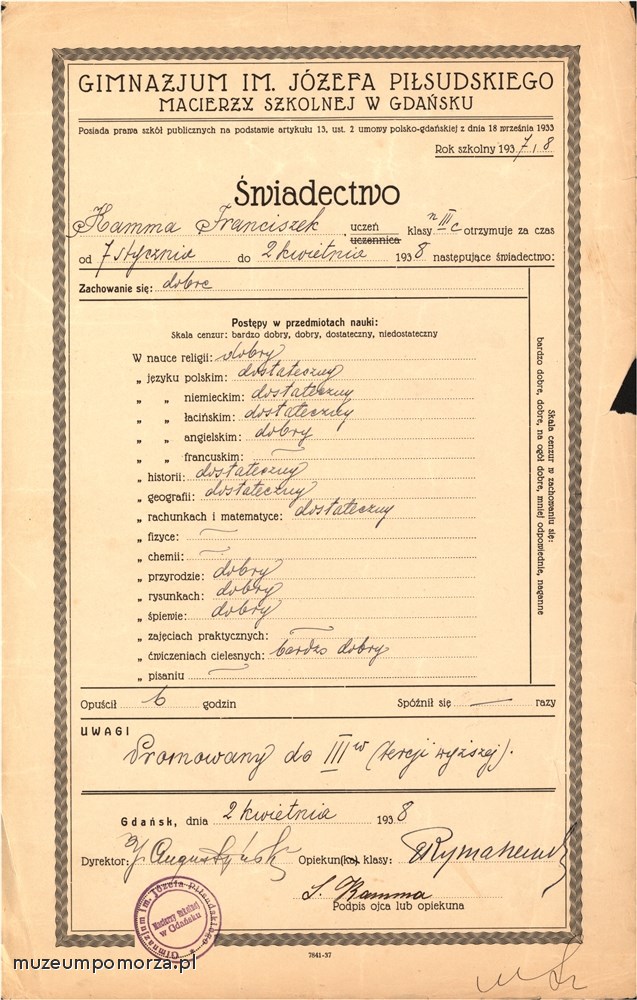 GIMNAZJUM IM. JÓZEFA PIŁSUDSKIEGO
MACIERZY SZKOLNEJ W GDAŃSKU
Posiada prawa szkół publicznych na podstawie artykułu 13, ust. 2 umowy polsko-gdańskiej z dnia 18 września 1933
Rok szkolny 1937/8
Świadectwo
Kamma Franciszek, uczeń uczennica klasy n III c otrzymuje za czas
od 7 stycznia do 2 kwietnia 1938 następujące świadectwo:
Zachowanie się: dobre
Postępy w przedmiotach nauki:
Skala cenzur: bardzo dobry, dobry, dostateczny, niedostateczny
W nauce religii: dobry
„ języku polskim: dostateczny
„ „ niemieckim: dostateczny
„ „ łacińskim: dostateczny
„ „ angielskim: dobry
„ „ francuskim: —
„ historii: dostateczny
„ geografii: dostateczny
„ rachunkach i matematyce: dostateczny
„ fizyce: —
„ chemii: —
„ przyrodzie: dobry
„ rysunkach: dobry
„ śpiewie: dobry
„ zajęciach praktycznych: —
„ ćwiczeniach cielesnych: bardzo dobry
„ pisaniu —
Skala cenzur w zachowaniu się:
bardzo dobre, dobre, na ogół dobre, mniej odpowiednie, naganne
Opuścił 6 godzin Spóźnił się — razy
UWAGI
Promowany do III w (tercji wyższej).
Gdańsk, dnia 2 kwietnia 1938
Dyrektor: J. Augustyński Opiekun(ka) klasy:
S. Kamma
Podpis ojca lub opiekuna
Gimnazjum im. Józefa Piłsudskiego
Macierzy Szkolnej
w Gdańsku
7841-37
muzeumpomorza.pl